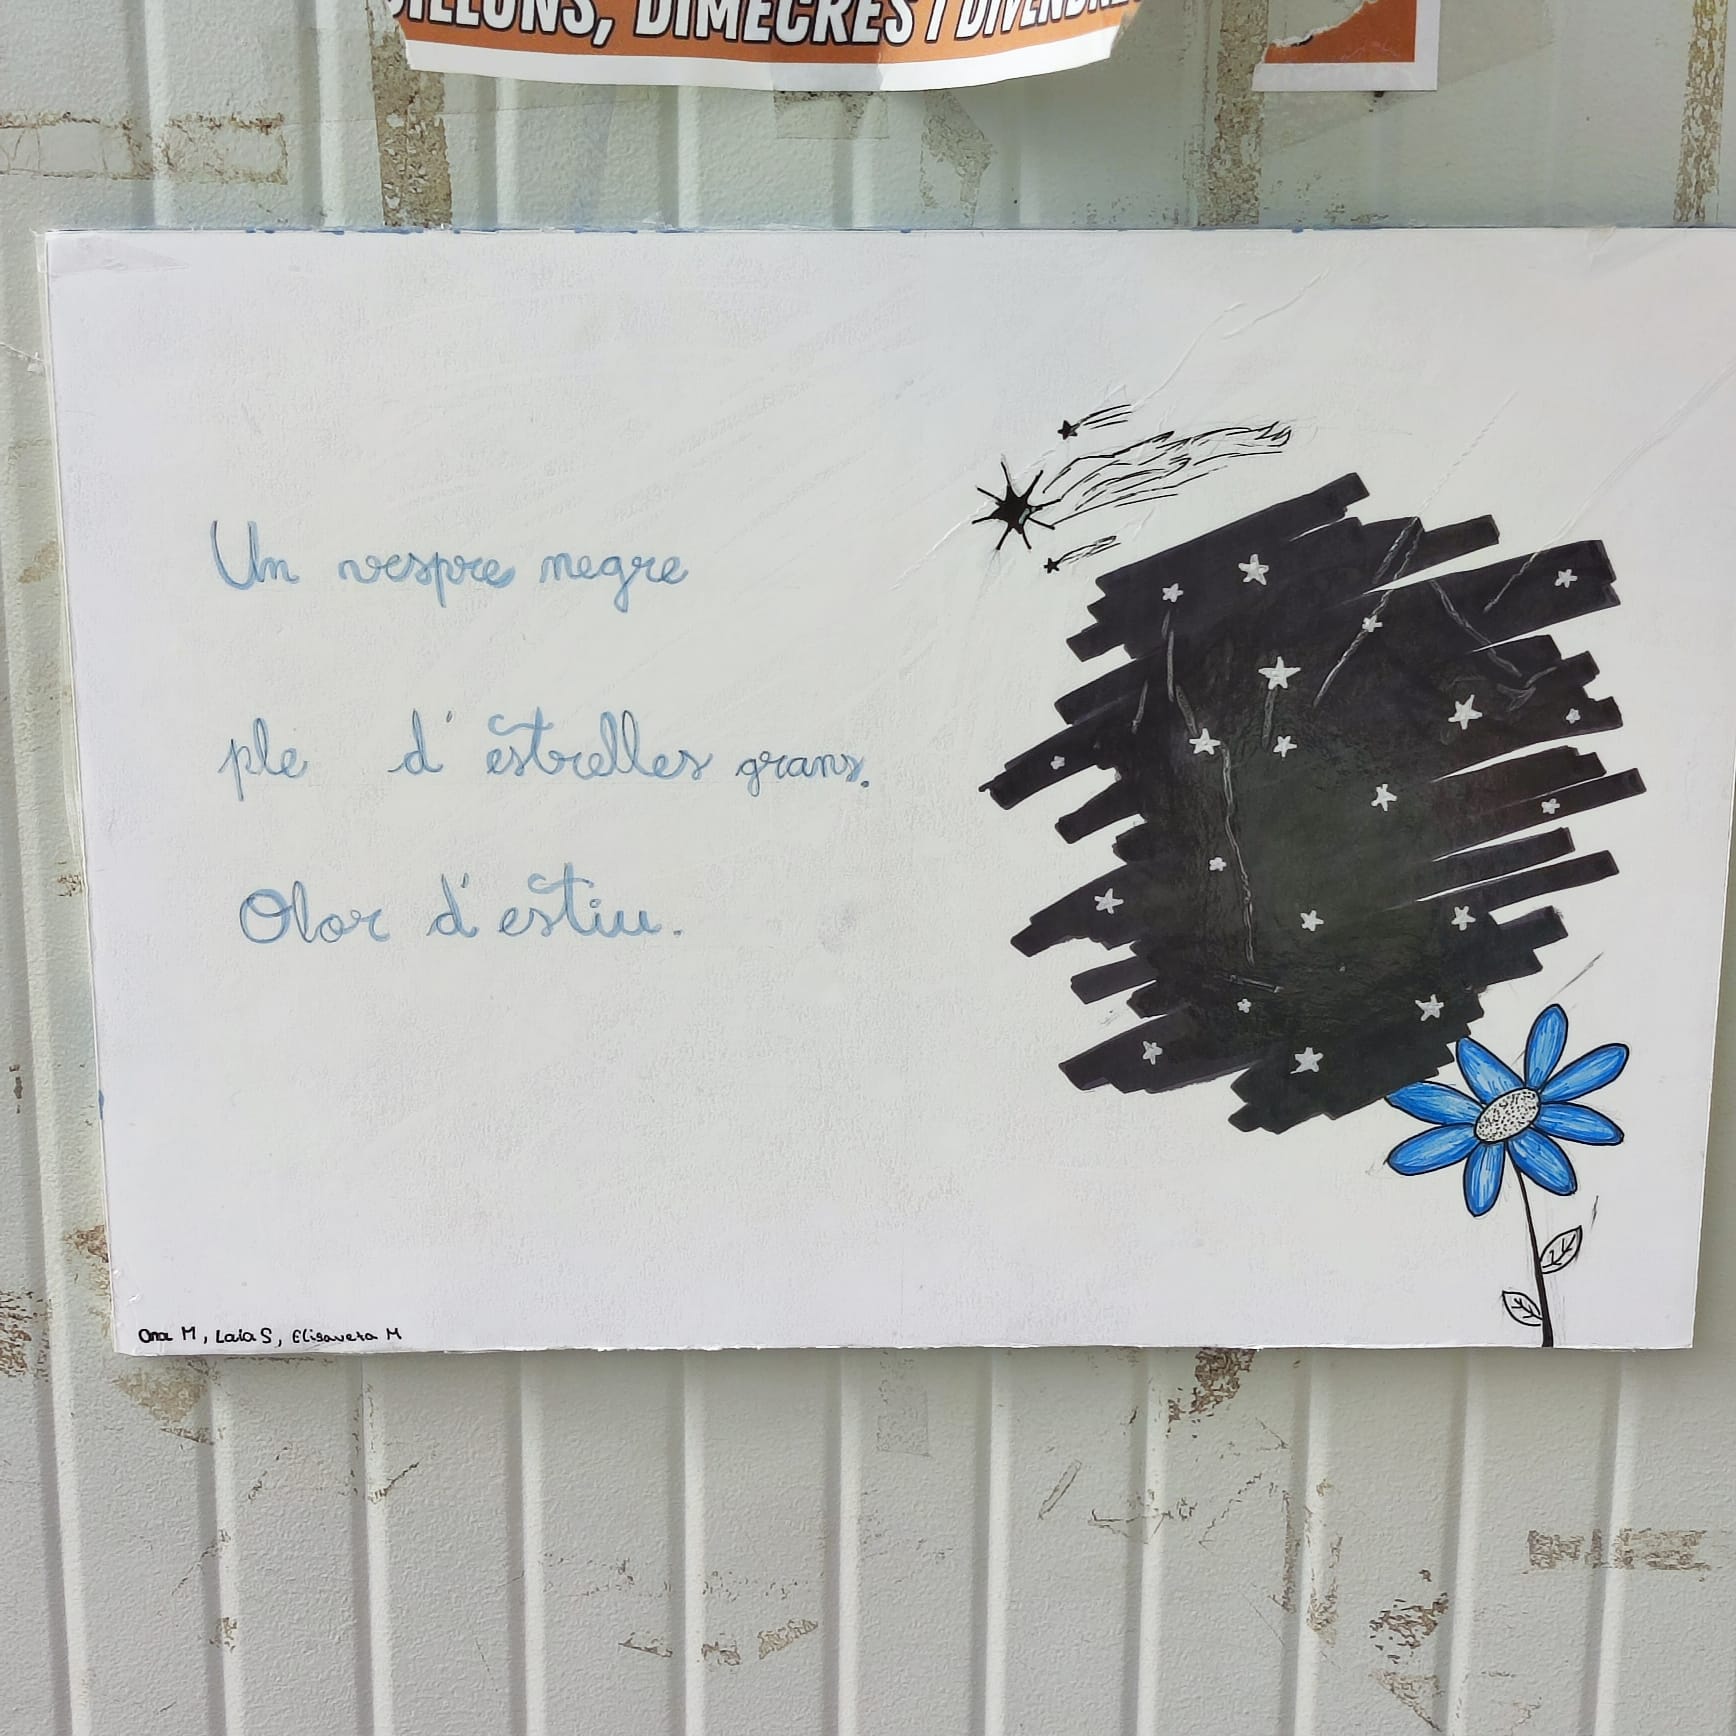 DILLUNS, DIMECRES I DIVENDRE
Un vespre negre
ple d'estrelles grans.
Olor d'estiu.
Ona M, Laia S, Elisaveta M